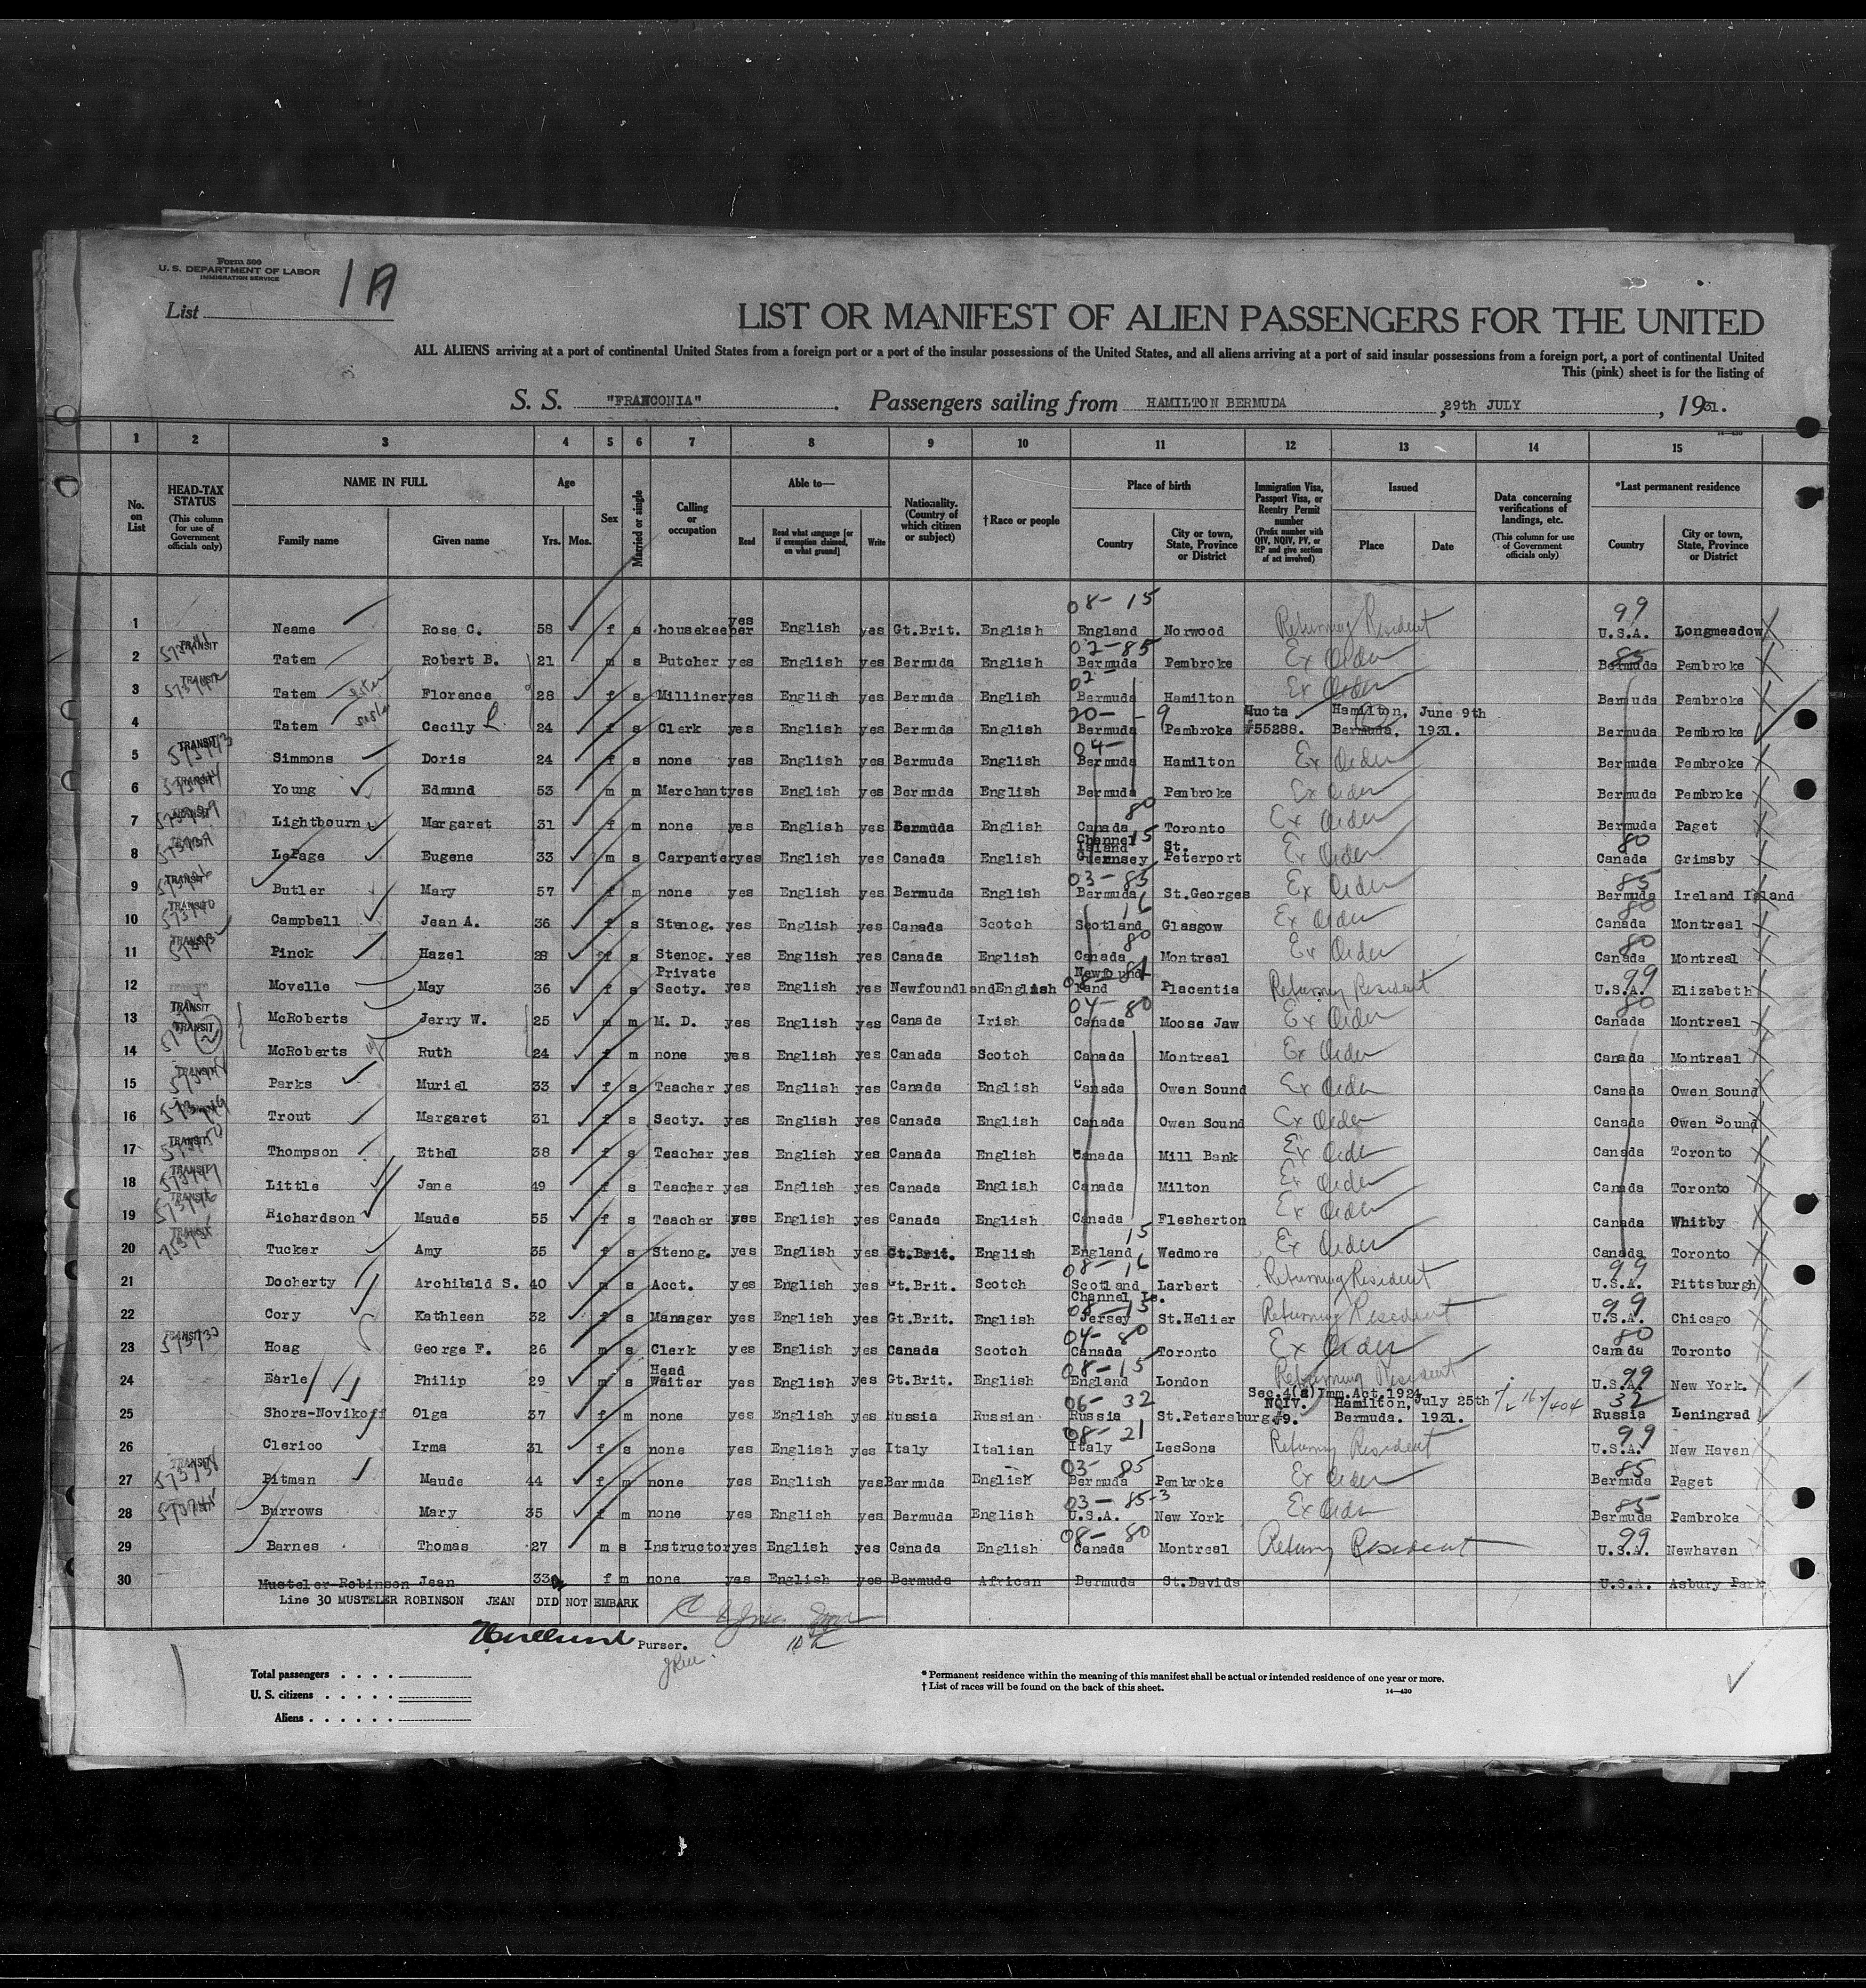 Form 500
U. S. DEPARTMENT OF LABOR
IMMIGRATION SERVICE
List 1A
LIST OR MANIFEST OF ALIEN PASSENGERS FOR THE UNITED
ALL ALIENS arriving at a port of continental United States from a foreign port or a port of the insular possessions of the United States, and all aliens arriving at a port of said insular possessions from a foreign port, a port of continental United
This (pink) sheet is for the listing of
S. S. "FRANCONIA" . Passengers sailing from HAMILTON BERMUDA , 29th JULY , 1931.
14-430
1 2 3 4 5 6 7 8 9 10 11 12 13 14 15
No. on List
HEAD-TAX STATUS (This column for use of Government officials only)
NAME IN FULL Family name Given name
Age Yrs. Mos.
Sex
Married or single
Calling or occupation
Able to— Read Read what language [or if exemption claimed, on what ground] Write
Nationality. (Country of which citizen or subject)
†Race or people
Place of birth Country City or town, State, Province or District
Immigration Visa, Passport Visa, or Reentry Permit number (Prefix number with QIV, NQIV, PV, or RP and give section of act involved)
Issued Place Date
Data concerning verifications of landings, etc. (This column for use of Government officials only)
*Last permanent residence Country City or town, State, Province or District
08- 15 99
1 Neame Rose C. 58 f s housekeeper yes English yes Gt.Brit. English England Norwood Returning Resident U.S.A. Longmeadow
02-85 85
2 TRANSIT Tatem Robert B. 21 m s Butcher yes English yes Bermuda English Bermuda Pembroke Ex Order Bermuda Pembroke
02-
3 TRANSIT Tatem sister Florence 28 f s Milliner yes English yes Bermuda English Bermuda Hamilton Ex Order Bermuda Pembroke
20- 9 Quota Hamilton, June 9th
4 Tatem Cecily L 24 f s Clerk yes English yes Bermuda English Bermuda Pembroke #55288. Bermuda, 1931. Bermuda Pembroke
04-
5 TRANSIT Simmons Doris 24 f s none yes English yes Bermuda English Bermuda Hamilton Ex Order Bermuda Pembroke
6 TRANSIT Young Edmund 53 m m Merchant yes English yes Bermuda English Bermuda Pembroke Ex Order Bermuda Pembroke
80
7 Lightbourn Margaret 31 f m none yes English yes Bermuda English Canada Toronto Ex Order Bermuda Paget
Channel 15 80
8 LePage Eugene 33 m s Carpenter yes English yes Canada English Island Guernsey St. Peterport Ex Order Canada Grimsby
03-85 85
9 TRANSIT Butler Mary 57 f m none yes English yes Bermuda English Bermuda St.Georges Ex Order Bermuda Ireland Island
16 80
10 TRANSIT Campbell Jean A. 36 f s Stenog. yes English yes Canada Scotch Scotland Glasgow Ex Order Canada Montreal
80 80
11 TRANSIT Pinck Hazel 28 f s Stenog. yes English yes Canada English Canada Montreal Ex Order Canada Montreal
Private Newfound 99
12 Movelle May 36 f s Secty. yes English yes Newfoundland English land Placentia Returning Resident U.S.A. Elizabeth
04- 80 80
13 TRANSIT McRoberts Jerry W. 25 m m M. D. yes English yes Canada Irish Canada Moose Jaw Ex Order Canada Montreal
14 TRANSIT 2 McRoberts Ruth 24 f m none yes English yes Canada Scotch Canada Montreal Ex Order Canada Montreal
15 TRANSIT Parks Muriel 33 f s Teacher yes English yes Canada English Canada Owen Sound Ex Order Canada Owen Sound
16 Trout Margaret 31 f s Secty. yes English yes Canada English Canada Owen Sound Ex Order Canada Owen Sound
17 TRANSIT Thompson Ethel 38 f s Teacher yes English yes Canada English Canada Mill Bank Ex Order Canada Toronto
18 TRANSIT Little Jane 49 f s Teacher yes English yes Canada English Canada Milton Ex Order Canada Toronto
19 TRANSIT Richardson Maude 55 f s Teacher yes English yes Canada English Canada Flesherton Ex Order Canada Whitby
15
20 TRANSIT Tucker Amy 35 f s Stenog. yes English yes Gt.Brit. English England Wedmore Ex Order Canada Toronto
08- 16 99
21 Docherty Archibald S. 40 m s Acct. yes English yes Gt.Brit. Scotch Scotland Larbert Returning Resident U.S.A. Pittsburgh
Channel Is. 08-15 99
22 Cory Kathleen 32 f s Manager yes English yes Gt.Brit. English Jersey St.Helier Returning Resident U.S.A. Chicago
04- 80 80
23 TRANSIT Hoag George F. 26 m s Clerk yes English yes Canada Scotch Canada Toronto Ex Order Canada Toronto
Head 08-15 99
24 Earle Philip 29 m s Waiter yes English yes Gt.Brit. English England London Returning Resident U.S.A. New York.
06- 32 Sec.4(a)Imm.Act.1924 NQIV. Hamilton, July 25th 32
25 Shora-Novikoff Olga 37 f m none yes English yes Russia Russian Russia St.Petersburg #9. Bermuda. 1931. Russia Leningrad
08- 21 99
26 Clerico Irma 31 f s none yes English yes Italy Italian Italy LesSona Returning Resident U.S.A. New Haven
03- 85 85
27 TRANSIT Pitman Maude 44 f m none yes English yes Bermuda English Bermuda Pembroke Ex Order Bermuda Paget
03- 85-3 85
28 Burrows Mary 35 f m none yes English yes Bermuda English U.S.A. New York Ex Order Bermuda Pembroke
08- 80 99
29 Barnes Thomas 27 m s Instructor yes English yes Canada English Canada Montreal Returning Resident U.S.A. Newhaven
30 Musteler Robinson Jean 33 f m none yes English yes Bermuda African Bermuda St.Davids U.S.A. Asbury Park
Line 30 MUSTELER ROBINSON JEAN DID NOT EMBARK
Purser.
Total passengers
U. S. citizens
Aliens
* Permanent residence within the meaning of this manifest shall be actual or intended residence of one year or more.
† List of races will be found on the back of this sheet.
14-430